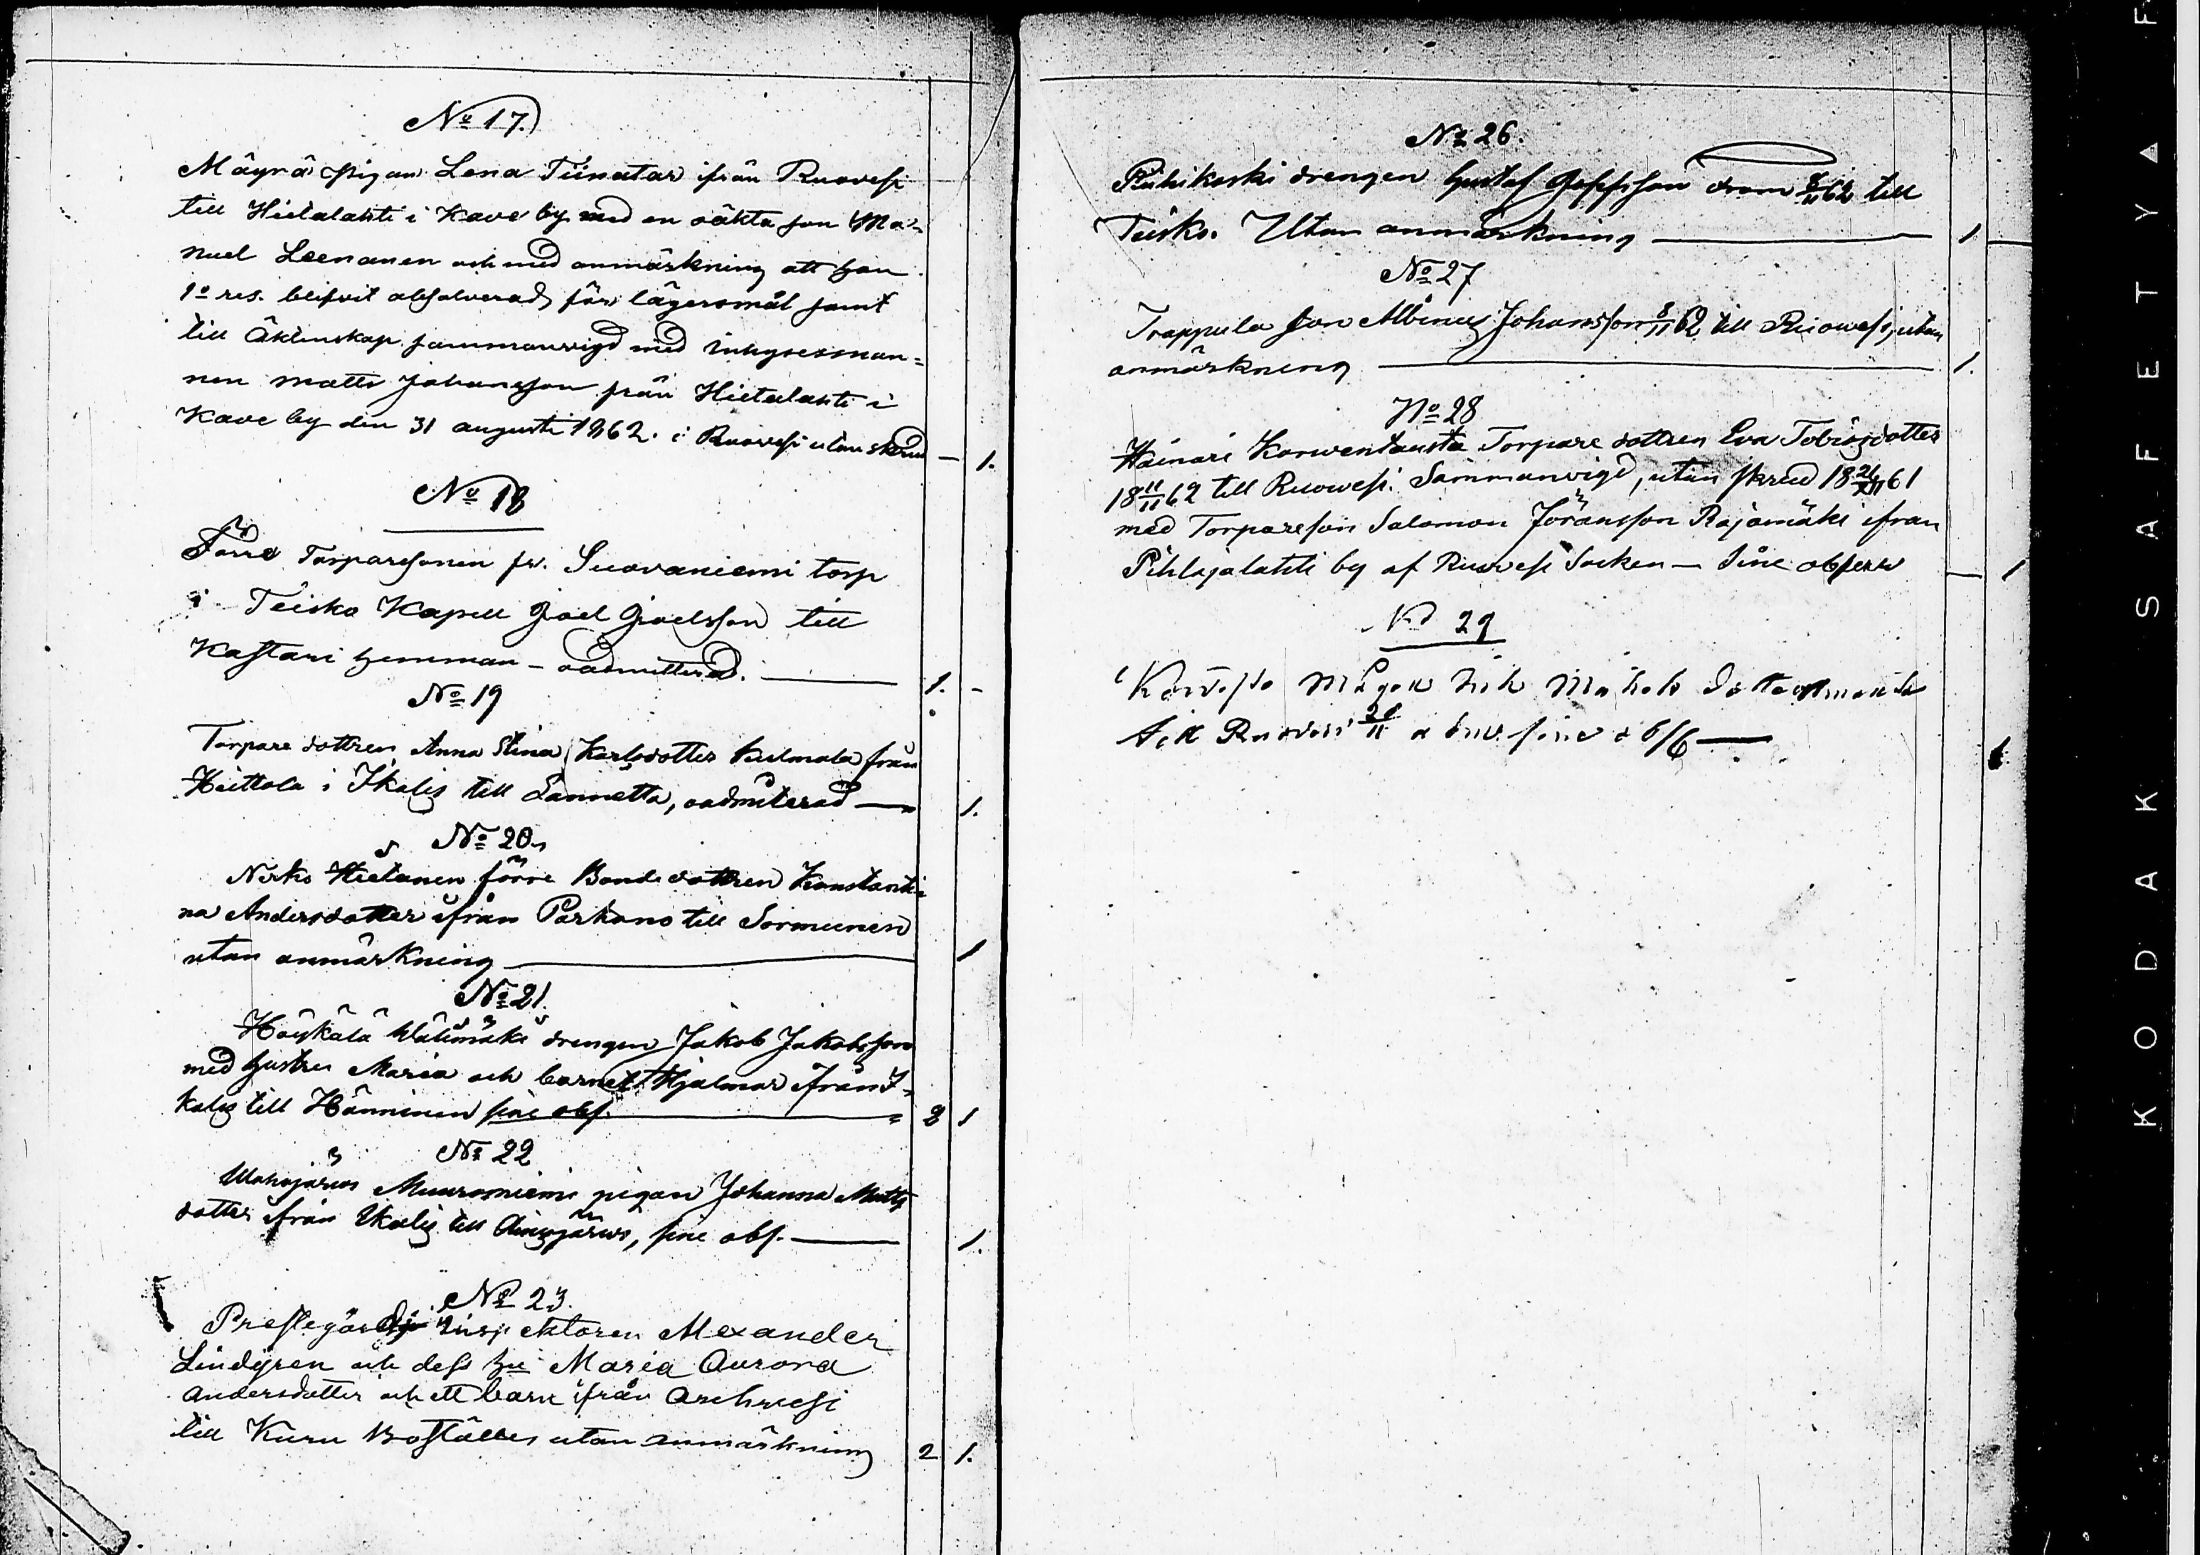 No 17.
Mäyrä pigan Lena Tiinatar ifrån Ruovesi
till Hietalahti i Kave by med en oäkta son Ma-
nuel Leenanen och med anmärkning att hon
1o res. blifvit absolverad för lägersmål samt
till Äktenskap sammanvigd med Inhysesman-
nen Matts Johansson från Hietalahti i
Kave by den 31 augusti 1862. i Ruovesi utan skrud — 1.
No 18
Förre Torparesonen fr. Suovaniemi torp
i Teisko Kapell Joel Joelsson till
Kastari hemman – oadmitterad. 1. -
No 19
Torpare dottren Anna Stina Karlsdotter Kulmala från
Heittola i Ikalis till Lannetta, oadmiterad 1.
No 20.
Hietanen förre Bonde dottren Konstanti-
na Andersdotter ifrån Parkano till Sormunen
utan anmärkning 1
No 21.
Höykälä Wälimäki drengen Jakob Jakobsson
med hustru Maria och barnet Hjalmar ifrån I-
kalis till Hänninen sine obs. 2 1
No 22
Muuroniemi pigan Johanna Matts
dotter ifrån Ikalis till sine obs. 1.
No 23.
Prestegårds Inspektoren Alexander
Lindgren och dess hu Maria Aurora
Andersdotter och ett barn ifrån Orehvesi
till Kuru Boställes utan anmärkning 2 1.
No 26.
Riuhikoski drengen Gustaf 62 till
Teisko. Utan anmärkning 1
No 27
Trappula son Albinus Johansson 8/11 62 till Ruovesi, utan
anmärkning 1.
No 28
Wäinäri Korwentausta Torpare dottren Eva Tobiasdotter
18 11/11 62 till Ruowesi. Sammanvigd, utan skrud 18 61
med Torpareson Salomon Jöransson Rajamäki ifran
Pihlajalahti by af Ruovesi Socken — Sine observ — 1
No 29
Mågen
till Ruovesi 1
KODAK SAFETY